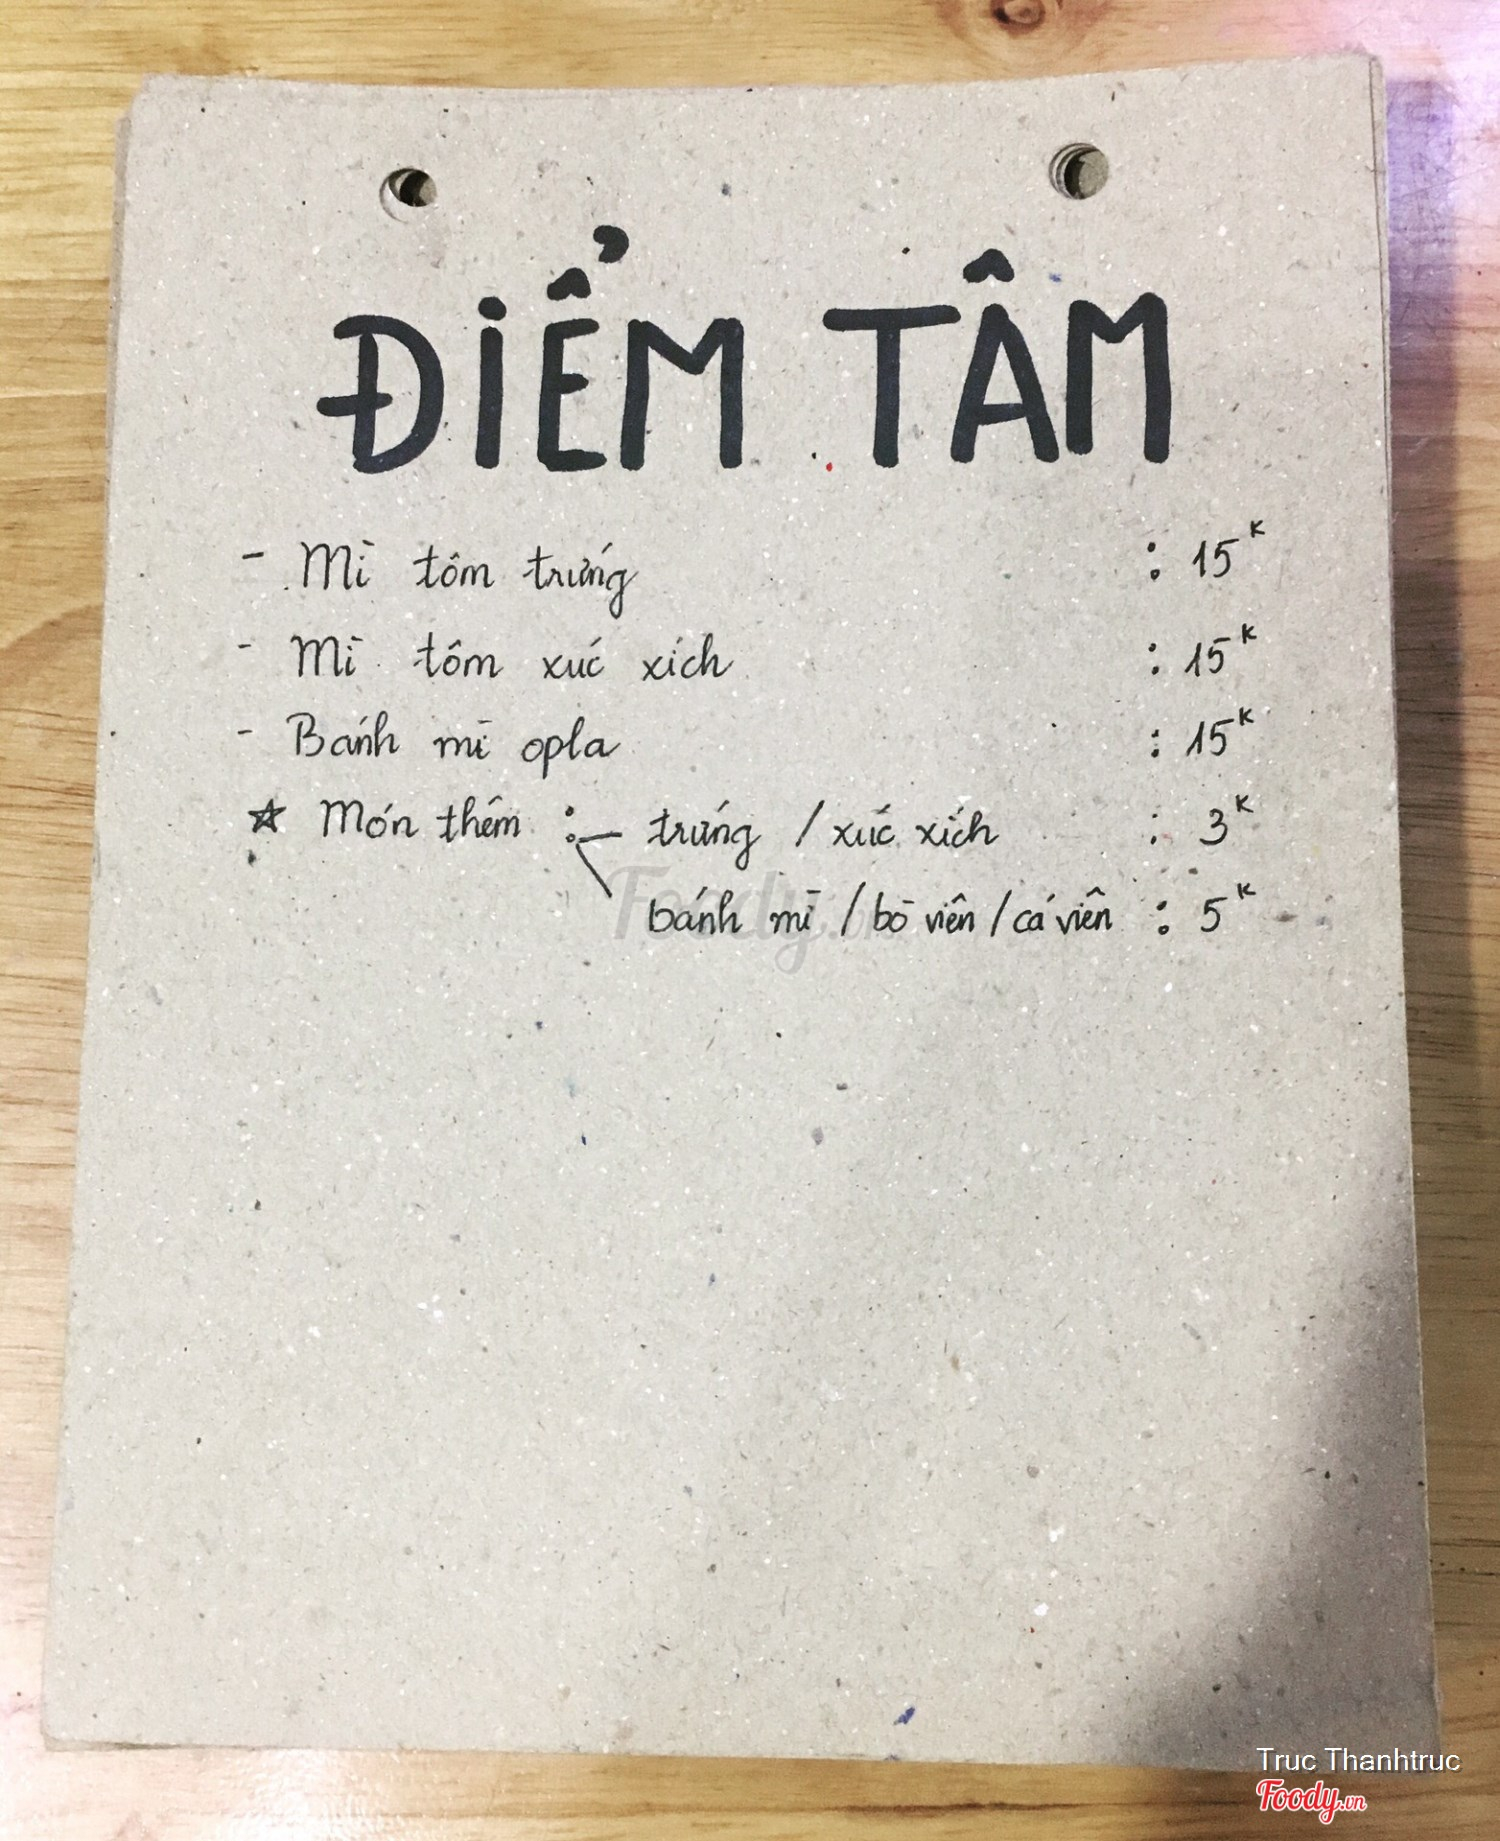 ĐIỂM TÂM
- Mì tôm trứng : 15K
- Mì tôm xúc xích : 15K
- Bánh mì opla : 15K
☆ Món thêm : trứng / xúc xích : 3K
bánh mì / bò viên / cá viên : 5K
Foody.vn
Truc Thanhtruc
Foody.vn